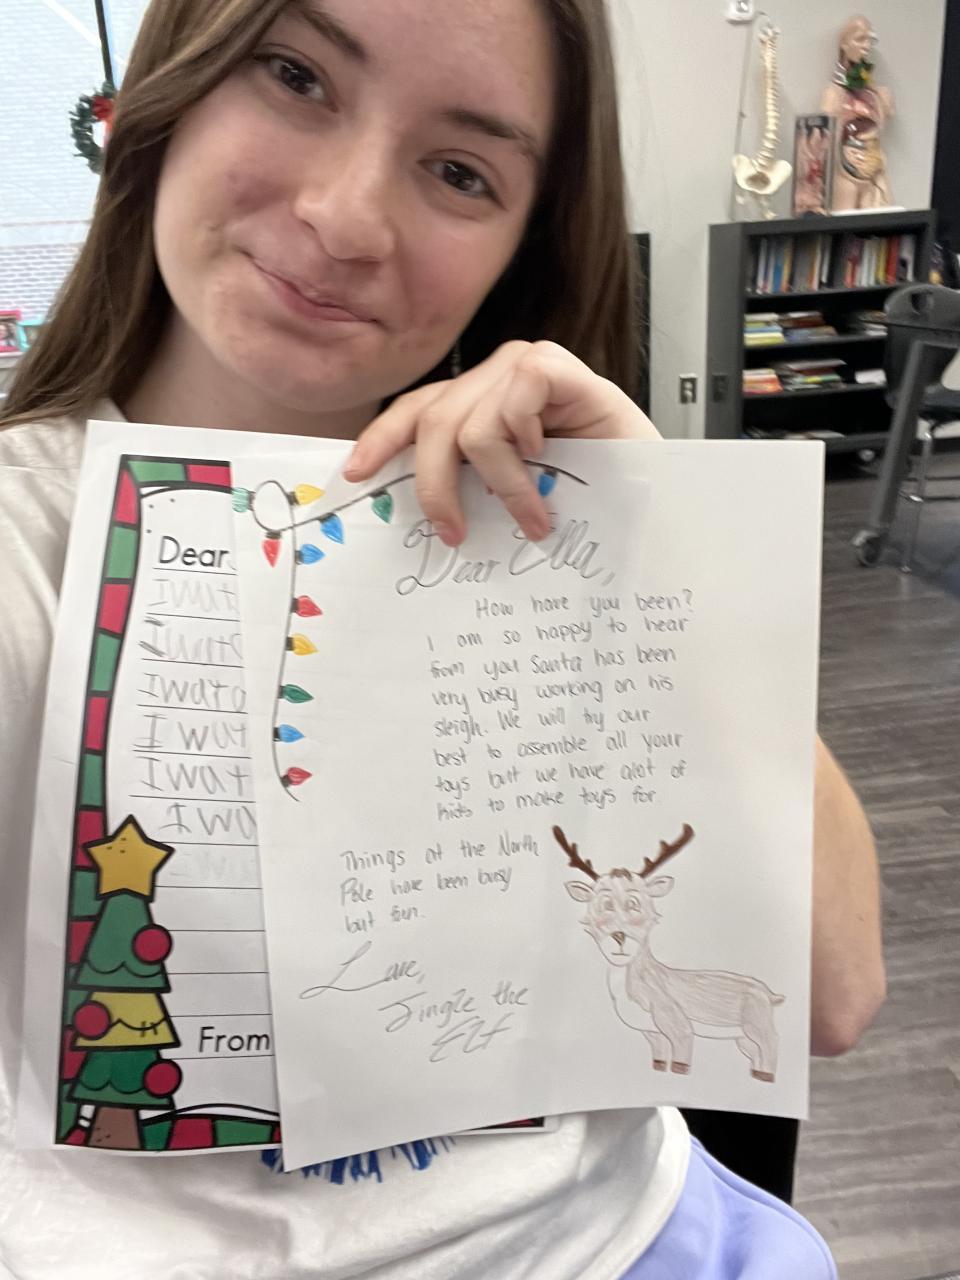 Dear
I wat
I wat
I wat a
I wat
I wat
I wa
From
Dear Ella,
How have you been?
I am so happy to hear
from you Santa has been
very busy working on his
sleigh. We will try our
best to assemble all your
toys but we have alot of
kids to make toys for.
Things at the North
Pole have been busy
but fun.
Love,
Jingle the
Elf